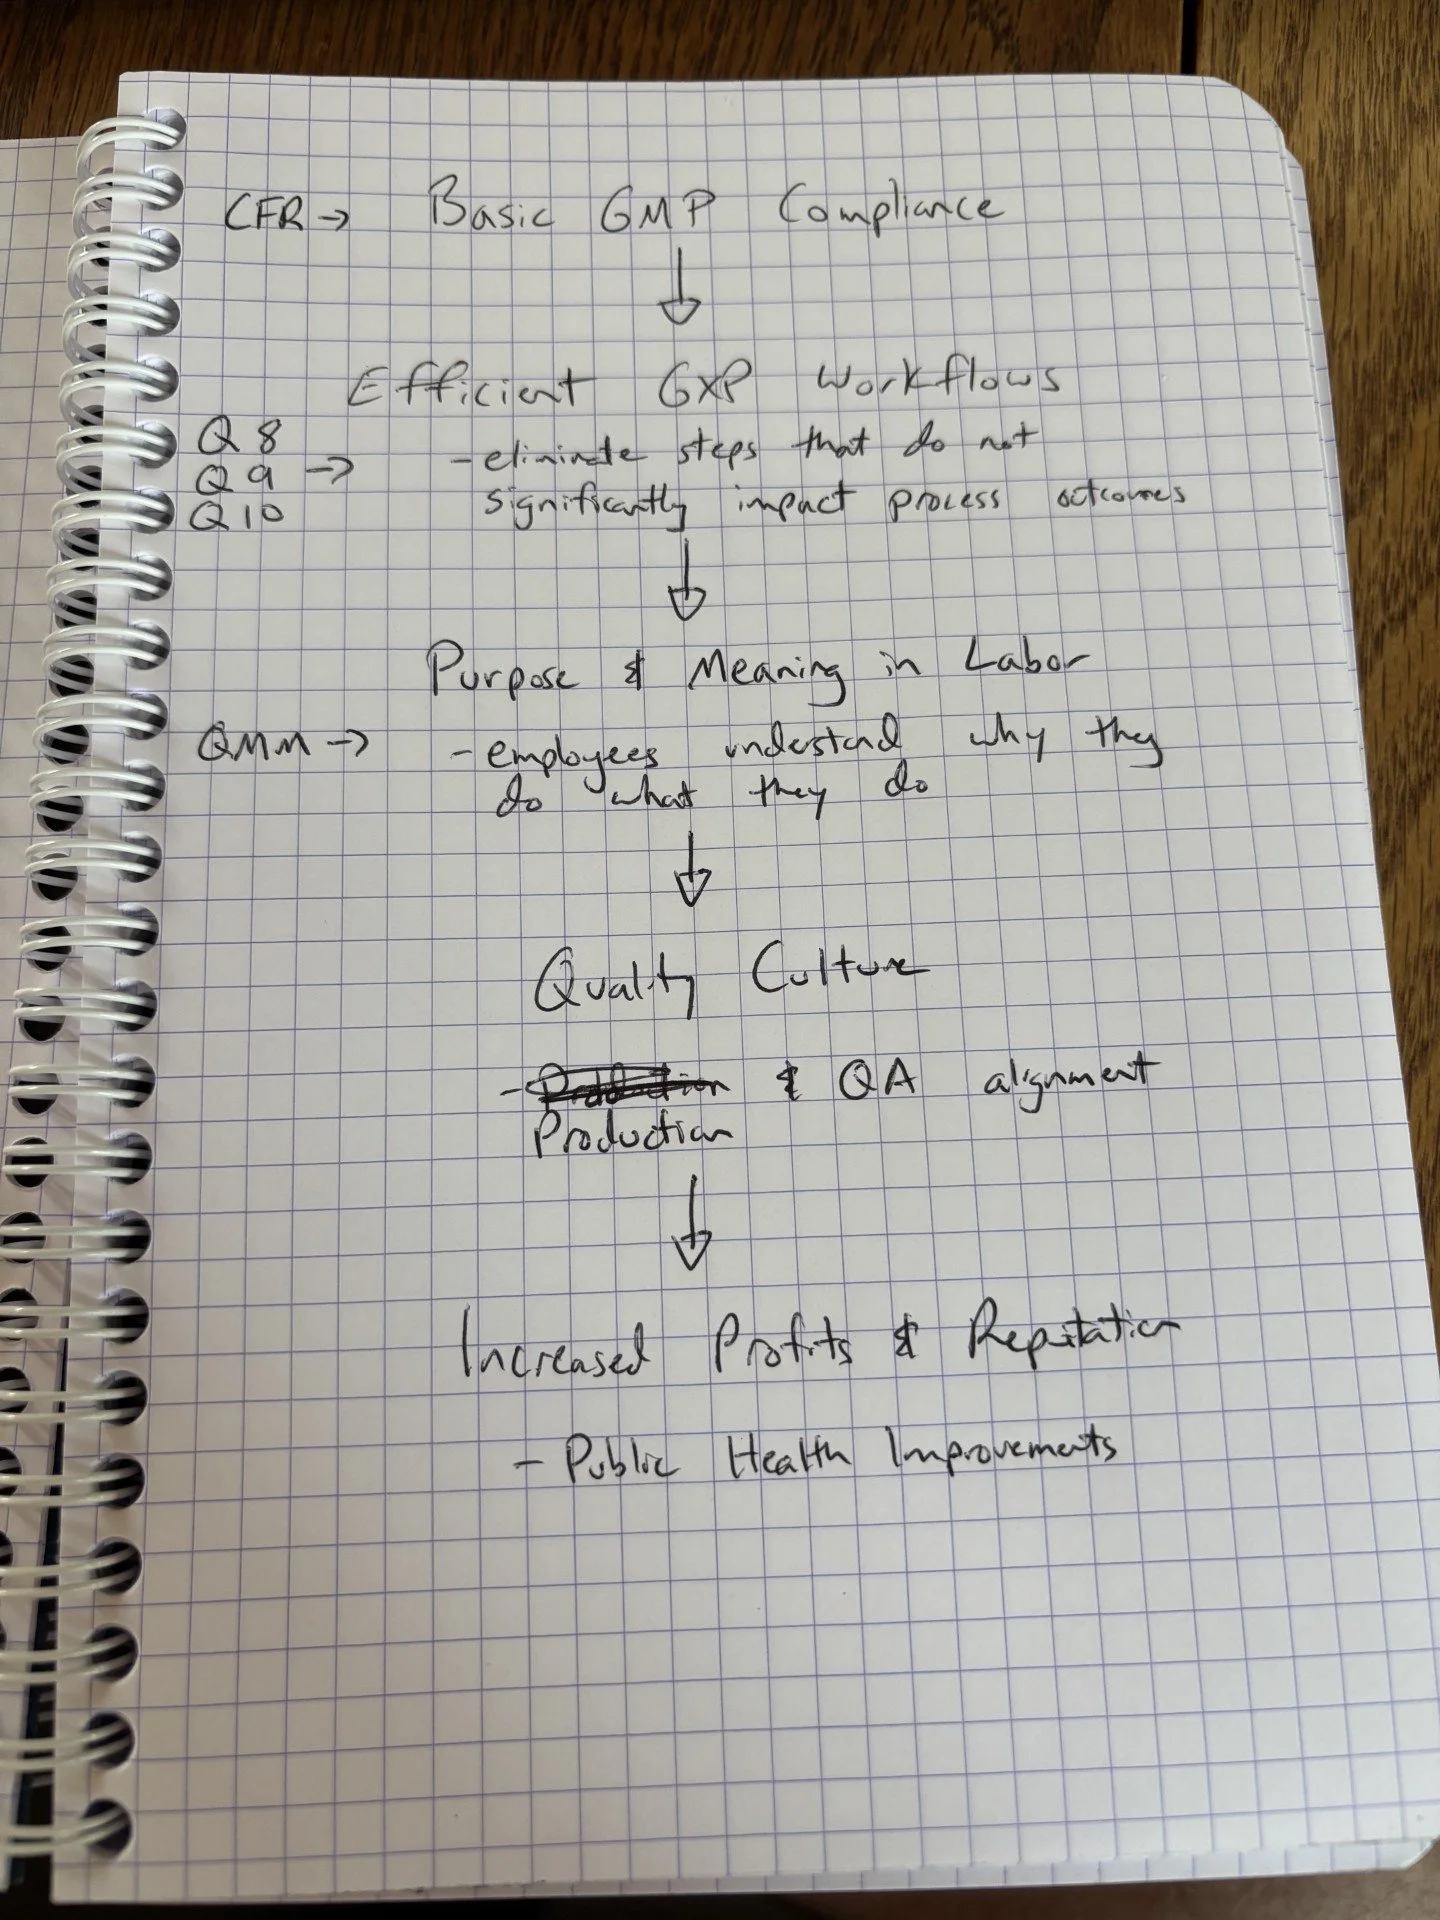 CFR → Basic GMP Compliance
↓
Efficient GXP Workflows
Q8
Q9 → - eliminate steps that do not
Q10 significantly impact process outcomes
↓
Purpose & Meaning in Labor
QMM → - employees understand why they
do what they do
↓
Quality Culture
- Production & QA alignment
Production
↓
Increased Profits & Reputation
- Public Health Improvements